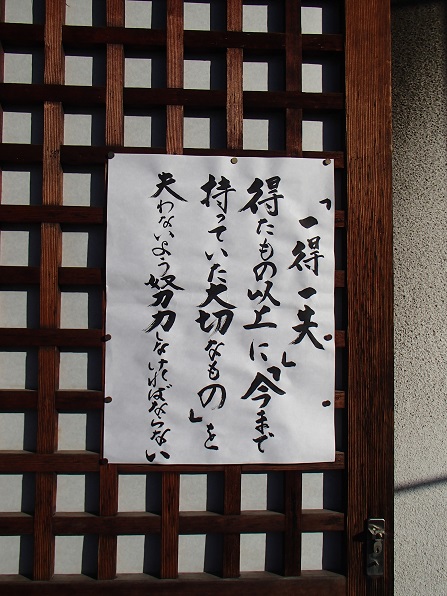 「一得一失」
得たもの以上に「今まで
持っていた大切なもの」を
失わないよう努力しなければならない